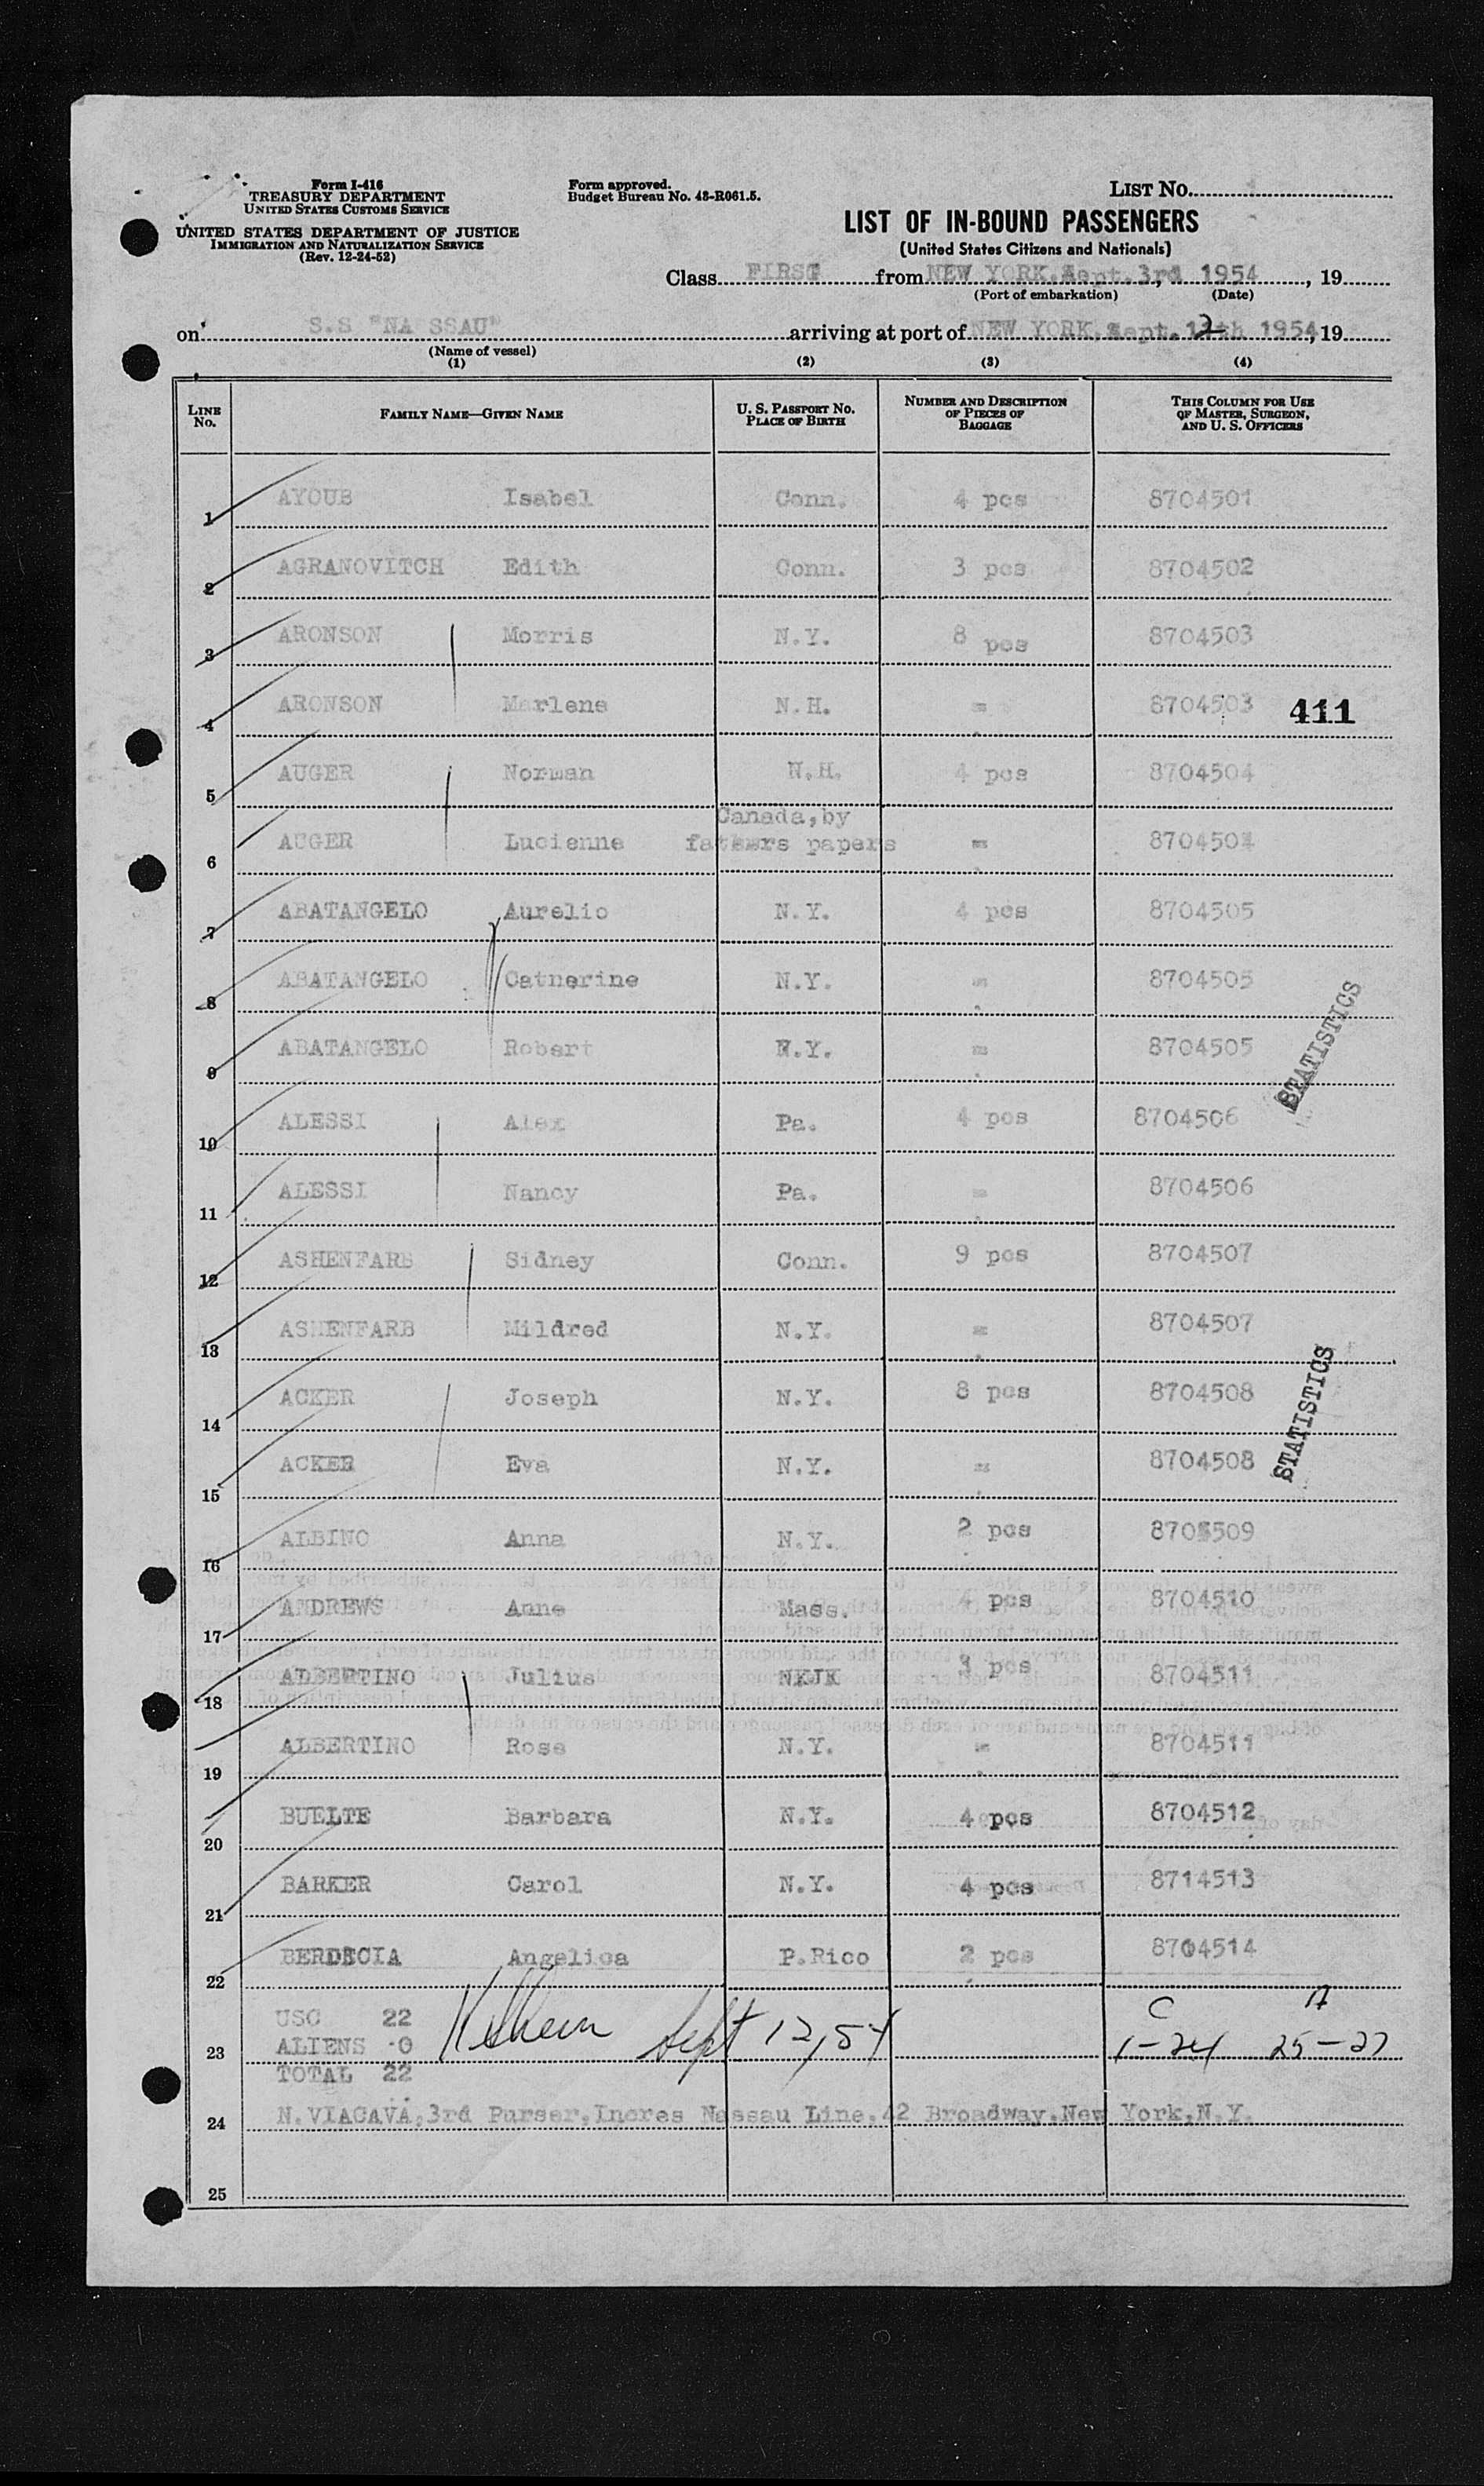 Form I-416
TREASURY DEPARTMENT
UNITED STATES CUSTOMS SERVICE
UNITED STATES DEPARTMENT OF JUSTICE
IMMIGRATION AND NATURALIZATION SERVICE
(Rev. 12-24-52)
Form approved.
Budget Bureau No. 43-R061.5.
LIST NO.
LIST OF IN-BOUND PASSENGERS
(United States Citizens and Nationals)
Class FIRST from NEW YORK, Sept. 3rd 1954, 19
(Port of embarkation) (Date)
on S.S "NASSAU" arriving at port of NEW YORK, Sept. 12th 1954, 19
(Name of vessel)
(1) (2) (3) (4)
LINE NO. FAMILY NAME—GIVEN NAME U. S. PASSPORT NO. PLACE OF BIRTH NUMBER AND DESCRIPTION OF PIECES OF BAGGAGE THIS COLUMN FOR USE OF MASTER, SURGEON, AND U. S. OFFICERS
1 AYOUB Isabel Conn. 4 pcs 8704501
2 AGRANOVITCH Edith Conn. 3 pcs 8704502
3 ARONSON Morris N.Y. 8 pcs 8704503
4 ARONSON Marlene N.H. = 8704503 411
5 AUGER Norman N.H. 4 pcs 8704504
Canada, by
6 AUGER Lucienne fathers papers = 8704504
7 ABATANGELO Aurelio N.Y. 4 pcs 8704505
8 ABATANGELO Catherine N.Y. = 8704505
9 ABATANGELO Robert N.Y. = 8704505
STATISTICS
10 ALESSI Alex Pa. 4 pcs 8704506
11 ALESSI Nancy Pa. = 8704506
12 ASHENFARB Sidney Conn. 9 pcs 8704507
13 ASHENFARB Mildred N.Y. = 8704507
14 ACKER Joseph N.Y. 8 pcs 8704508
STATISTICS
15 ACKER Eva N.Y. = 8704508
16 ALBINO Anna N.Y. 2 pcs 8704509
17 ANDREWS Anne Mass. 4 pcs 8704510
18 ALBERTINO Julius 3 pcs 8704511
19 ALBERTINO Rose N.Y. = 8704511
20 BUELTE Barbara N.Y. 4 pcs 8704512
21 BARKER Carol N.Y. 4 pcs 8714513
22 BERDECIA Angelica P.Rico 2 pcs 8704514
USC 22
C A
23 ALIENS 0 Sept 12, 54 1-24 25-27
TOTAL 22
24 N.VIACAVA, 3rd Purser, Incres Nassau Line. 42 Broadway. New York, N.Y.
25